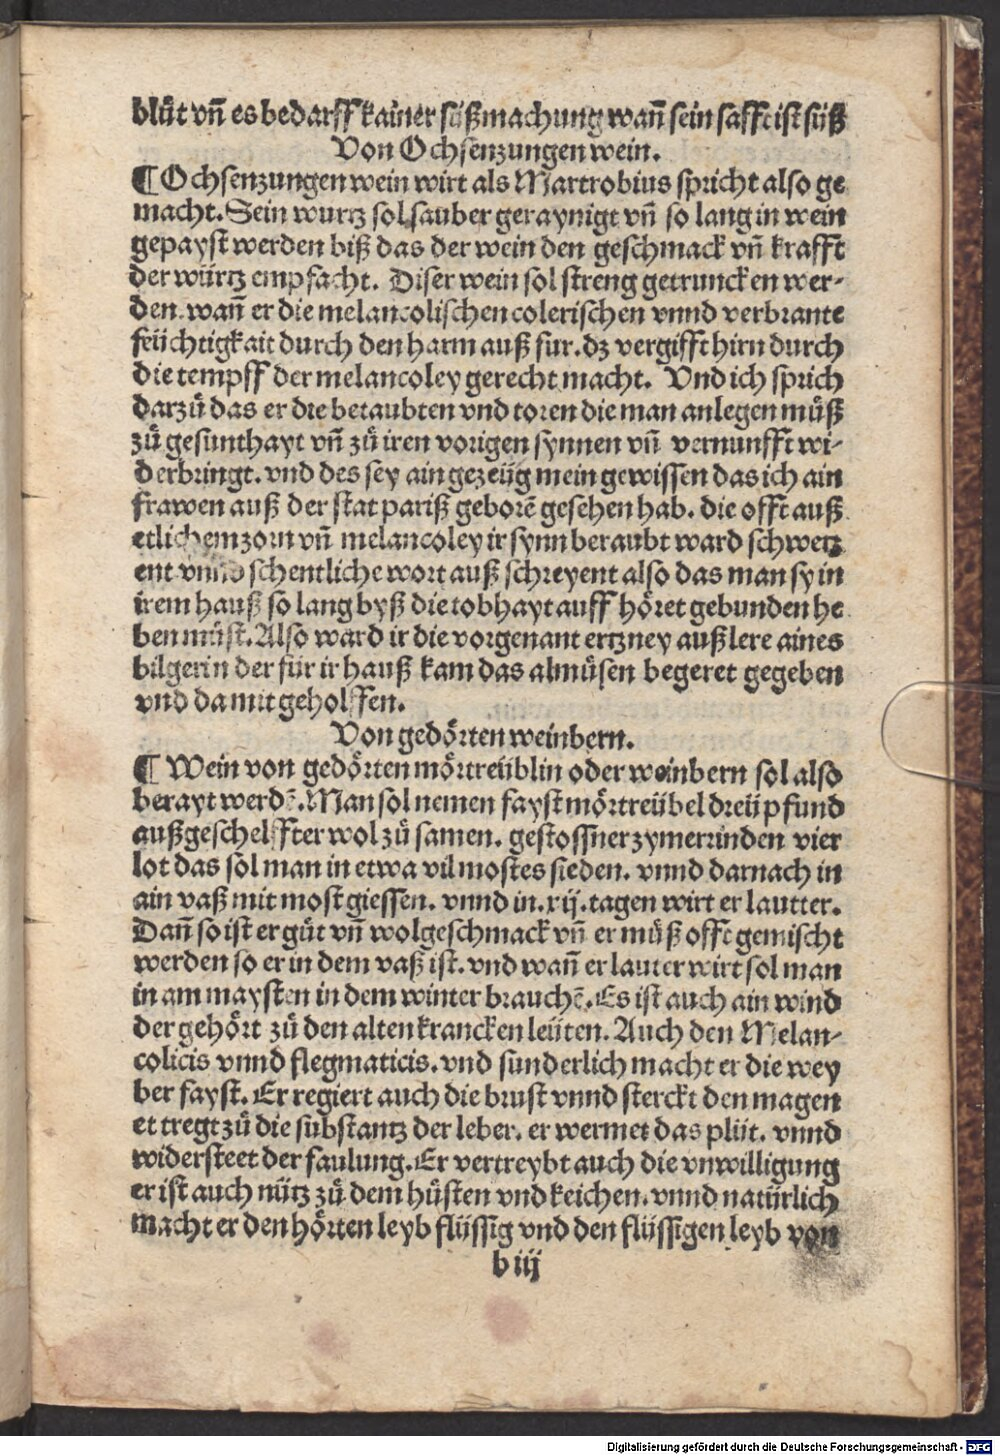 blůt vñ es bedarff kainer süßmachung wañ sein safft ist süß
Von Ochsenzungen wein.
¶ Ochsenzungen wein wirt als Martrobius spricht also ge
macht. Sein wurtz sol sauber geraynigt vñ so lang in wein
gepayst werden biß das der wein den geschmack vñ krafft
der würtz empfacht. Diser wein sol streng getruncken wer-
den. wañ er die melancolischen colerischen vnnd verbrante
feüchtigkait durch den harm auß fur. dz vergifft hirn durch
die tempff der melancoley gerecht macht. Vnd ich sprich
darzů das er die betaubten vnd toren die man anlegen můß
zů gesunthayt vñ zů iren vorigen synnen vñ vernunfft wi-
derbringt. vnd des sey ain gezeüg mein gewissen das ich ain
frawen auß der stat pariß geborẽ gesehen hab. die offt auß
etlichem zorn vñ melancoley ir synn beraubt ward schwetz
ent vnnd schentliche wort auß schreyent also das man sy in
irem hauß so lang byß die tobhayt auff höret gebunden he
ben můst. Also ward ir die vorgenant ertzney auß lere aines
bilgerin der für ir hauß kam das almůsen begeret gegeben
vnd damit geholffen.
Von gedörten weinbern.
¶ Wein von gedörten mörtreüblin oder weinbern sol also
berayt werdẽ. Man sol nemen fayst mörtreübel dreü pfund
außgeschelffter wol zů samen. gestossner zymerrinden vier
lot das sol man in etwa vil mostes sieden. vnnd darnach in
ain vaß mit most giessen. vnnd in .xij. tagen wirt er lautter.
Dañ so ist er gůt vñ wolgeschmack vñ er můß offt gemischt
werden so er in dem vaß ist. vnd wañ er lauter wirt sol man
in am maysten in dem winter brauchẽ. Es ist auch ain wind
der gehört zů den alten krancken leüten. Auch den Melan-
colicis vnnd flegmaticis. vnd sunderlich macht er die wey
ber fayst. Er regiert auch die brust vnnd sterckt den magen
et tregt zů die substantz der leber. er wermet das plůt. vnnd
widersteet der faulung. Er vertreybt auch die vnwilligung
er ist auch nütz zů dem hůsten vnd keichen. vnnd natürlich
macht er den hörten leyb flüssig vnd den flüssigen leyb von
b iij
Digitalisierung gefördert durch die Deutsche Forschungsgemeinschaft - DFG